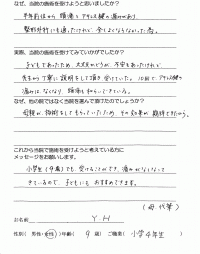 なぜ、当院の施術を受けようと思いましたか？
半年前から頭痛とアキレス腱の痛みがあり、
整形外科にも通ったけれど全くよくならなかった為。
実際、当院の施術を受けてみていかがでしたか？
子どもであったため、大丈夫かどうか、不安もあったけれど
先生から丁寧に説明をして頂き受けていた。10回でアキレス腱の
痛みはなくなり頭痛もからくできている。
なぜ他の院ではなく当院を選んで受けたのでしょうか？
母親が施術をしてもらっていたため、その効果が期待できたから。
これから当院の施術を受けようと考えている方に
メッセージをお願いします。
小学生（9歳）でも、受けることができ、痛みがなくなって
きているので、子どもにもおすすめできます。
（母、代筆）
お名前 Y H
性別（ 男性・女性 ）年齢（ 9 歳）ご職業（ 小学4年生 ）